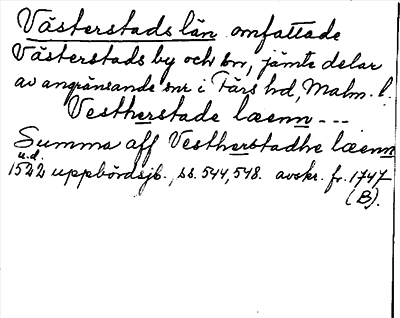 Västerstads län omfattade
Västerstads by och sn, jämte delar
av angränsande snr i Färs hd, Malm. l.
Vestherstade læenn ---
Summa aff Vestherstadhe læenn
u.d.
1522 uppbördsjb., ss. 544, 548. avskr. fr. 1747
(B).